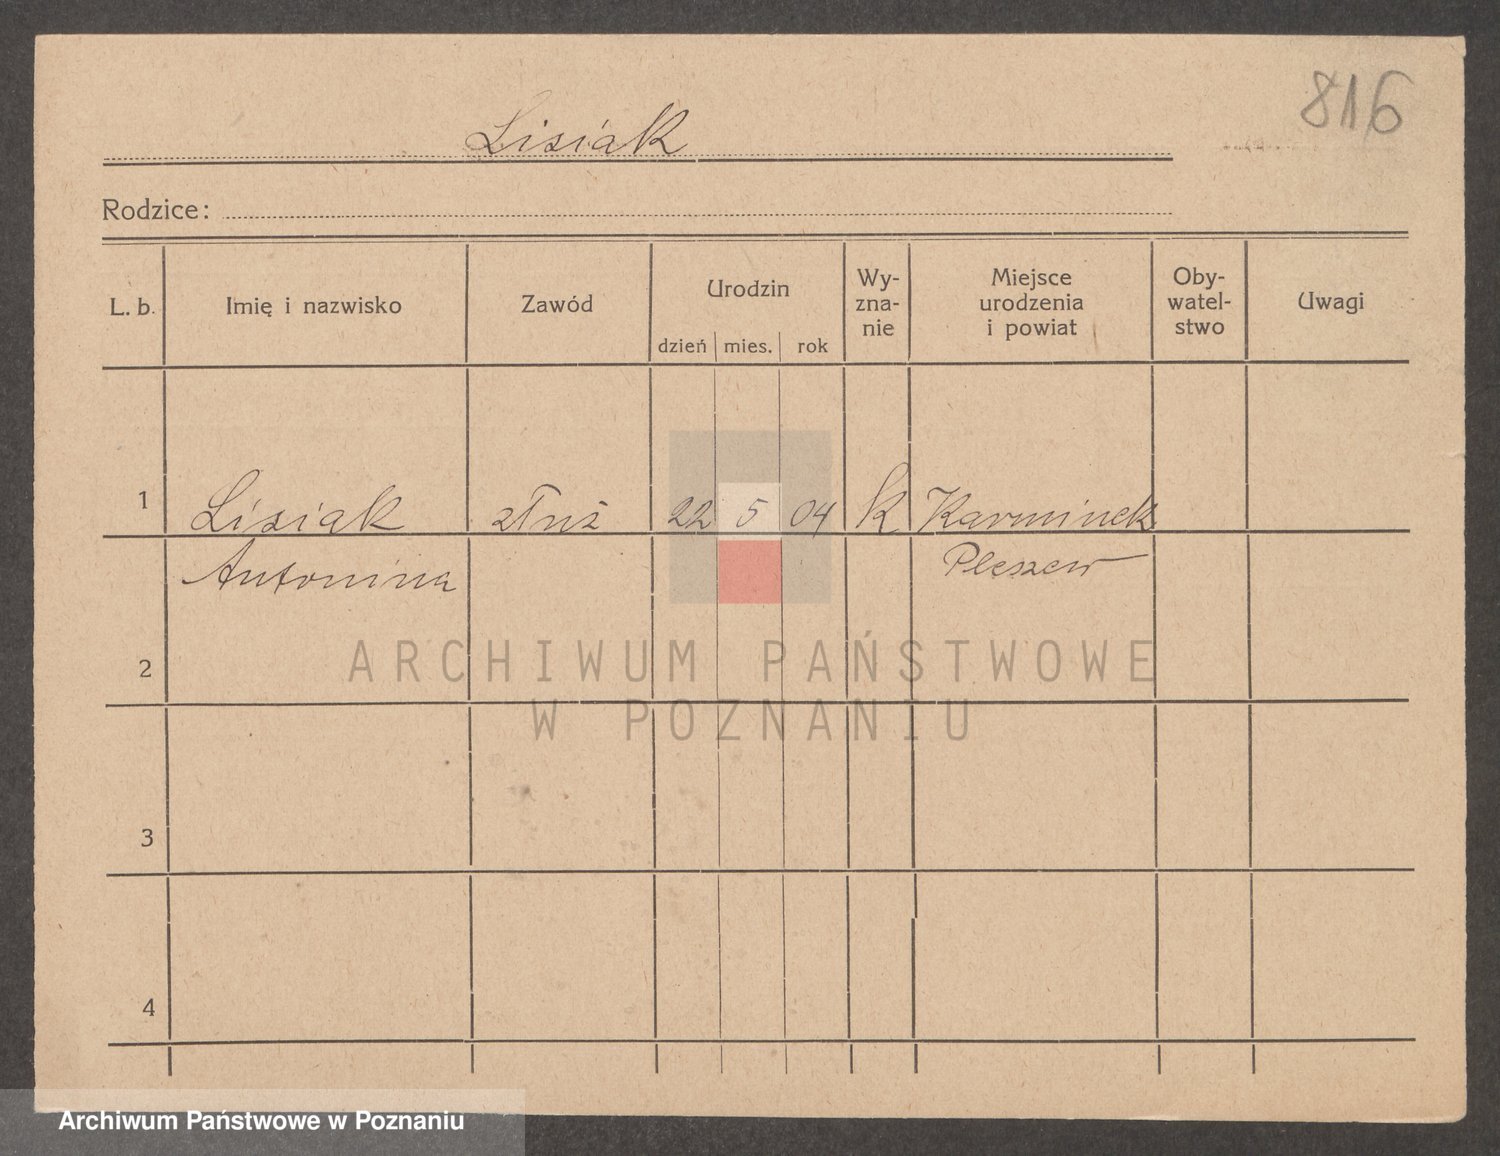 816
Lisiak
Rodzice:
L. b. Imię i nazwisko Zawód Urodzin dzień mies. rok Wy-zna-nie Miejsce urodzenia i powiat Oby-watel-stwo Uwagi
1 Lisiak służ 22 5 04 K Karminek
Antonina Pleszew
2
ARCHIWUM PAŃSTWOWE
W POZNANIU
3
4
Archiwum Państwowe w Poznaniu